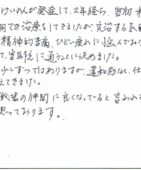 けいれんが発症して、2年経ち、当初
での治療をしてきましたが、完治する気
精神的苦痛、ひどい痛みに悩んでおり
て、当医院に通うという決めました。
少しずつではありますが、違和感なく、仕
えてきました。
職場の仲間に良くなっていると言われ
思っております。